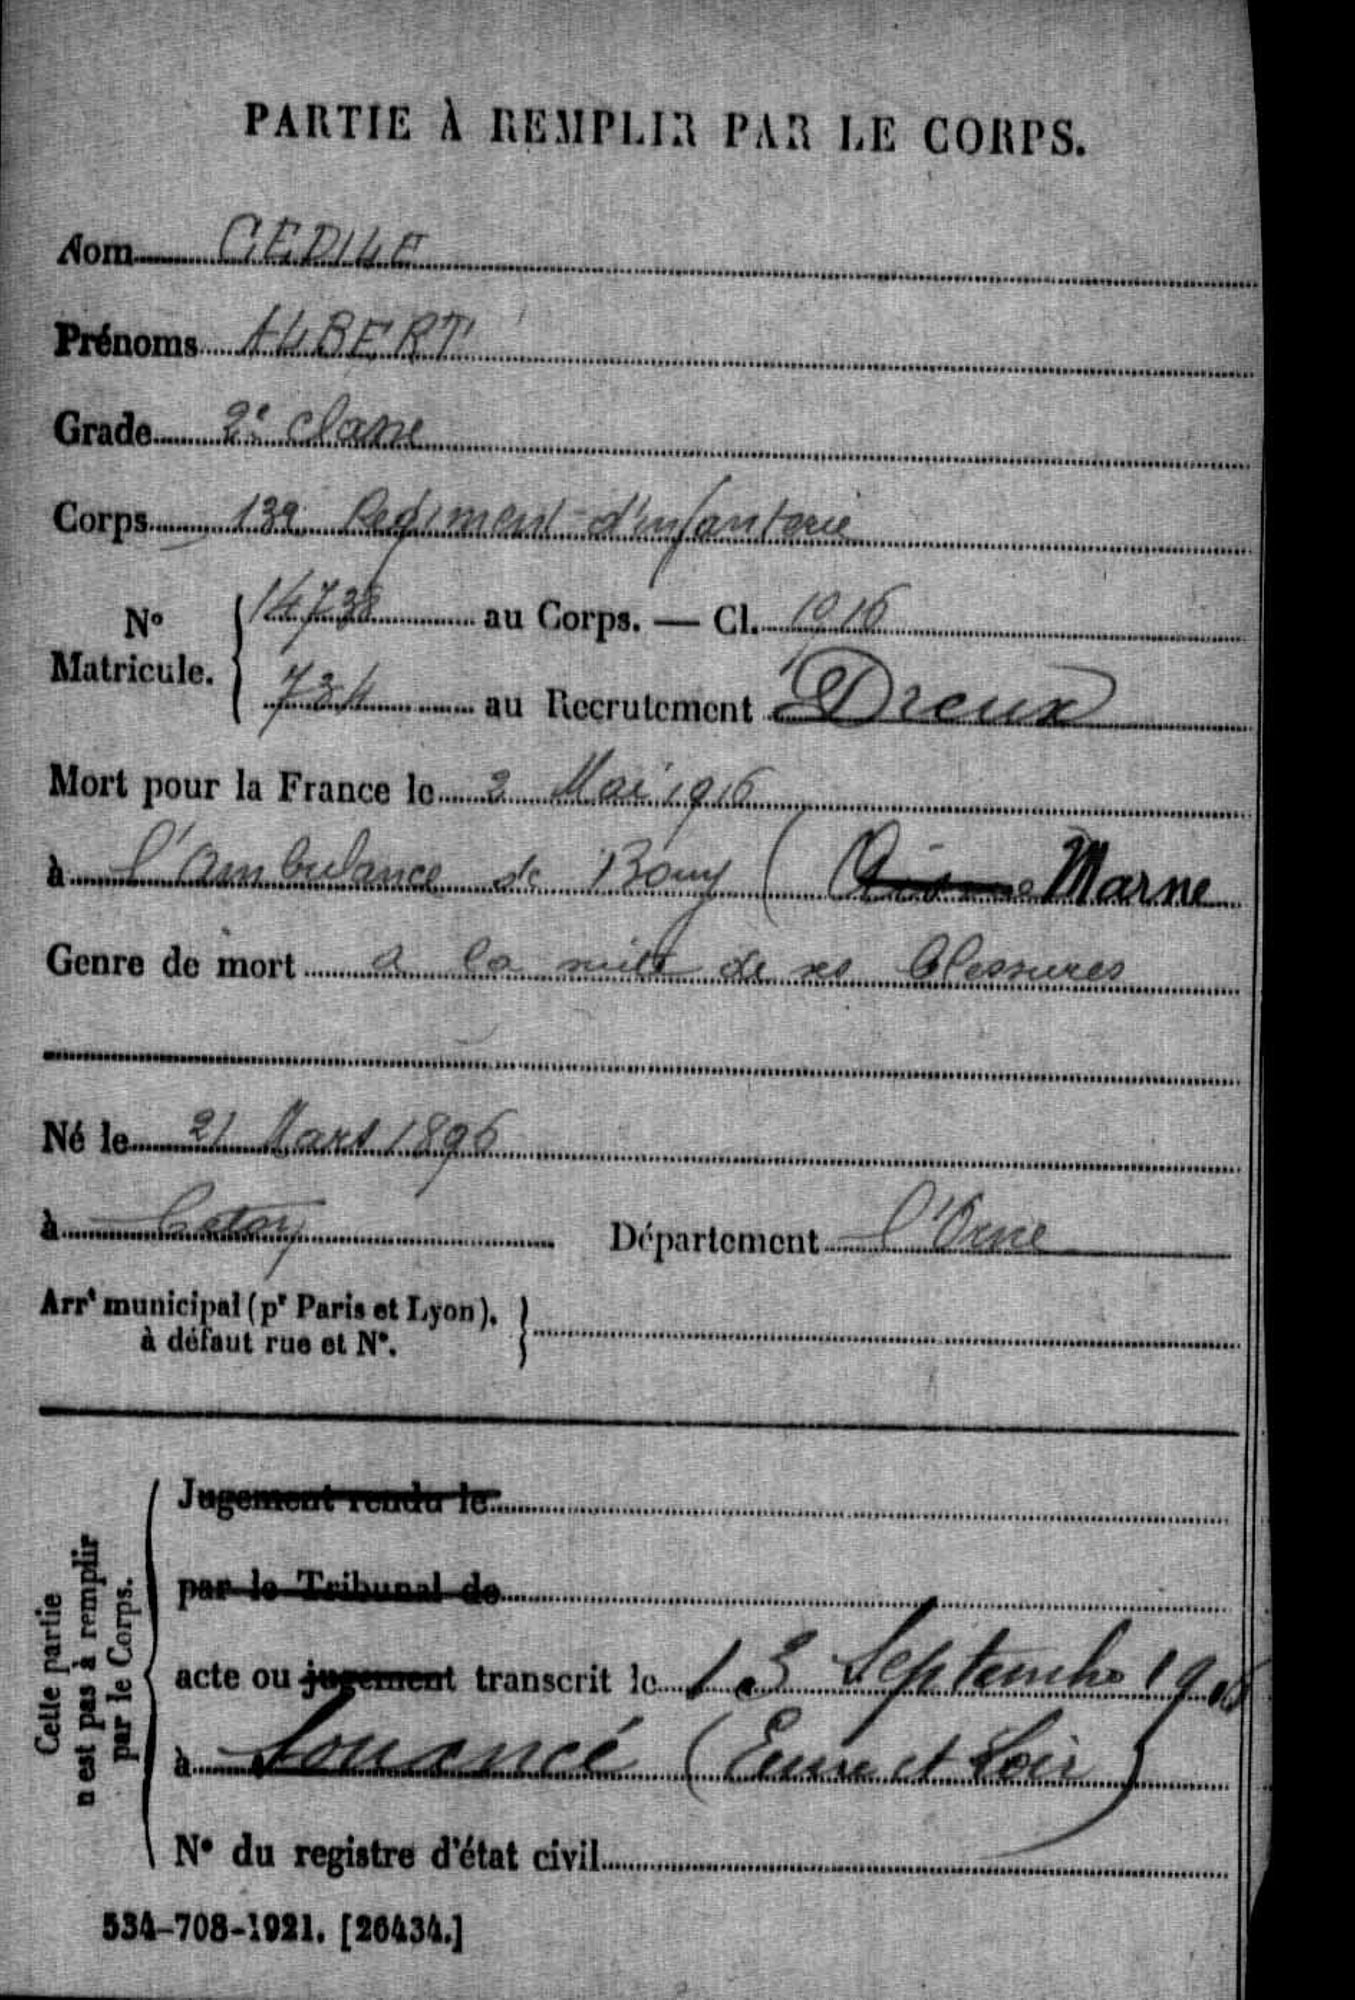 PARTIE À REMPLIR PAR LE CORPS.
Nom CEDILE
Prénoms ALBERT
Grade 2e classe
Corps 132 Regiment d'infanterie
No Matricule. 14738 au Corps. — Cl. 1916
734 au Recrutement Dreux
Mort pour la France le 2 Mai 1916
à l'Ambulance de Bouy ( Aisne Marne
Genre de mort a la suite de ses blessures
Né le 21 Mars 1896
à Ceton Département l'Orne
Arrt municipal (pr Paris et Lyon),
à défaut rue et No.
Cette partie
n'est pas à remplir
par le Corps.
Jugement rendu le
par le Tribunal de
acte ou jugement transcrit le 13 Septembre 1916
à Souancé (Eure et Loir)
No du registre d'état civil
534-708-1921. [26434.]